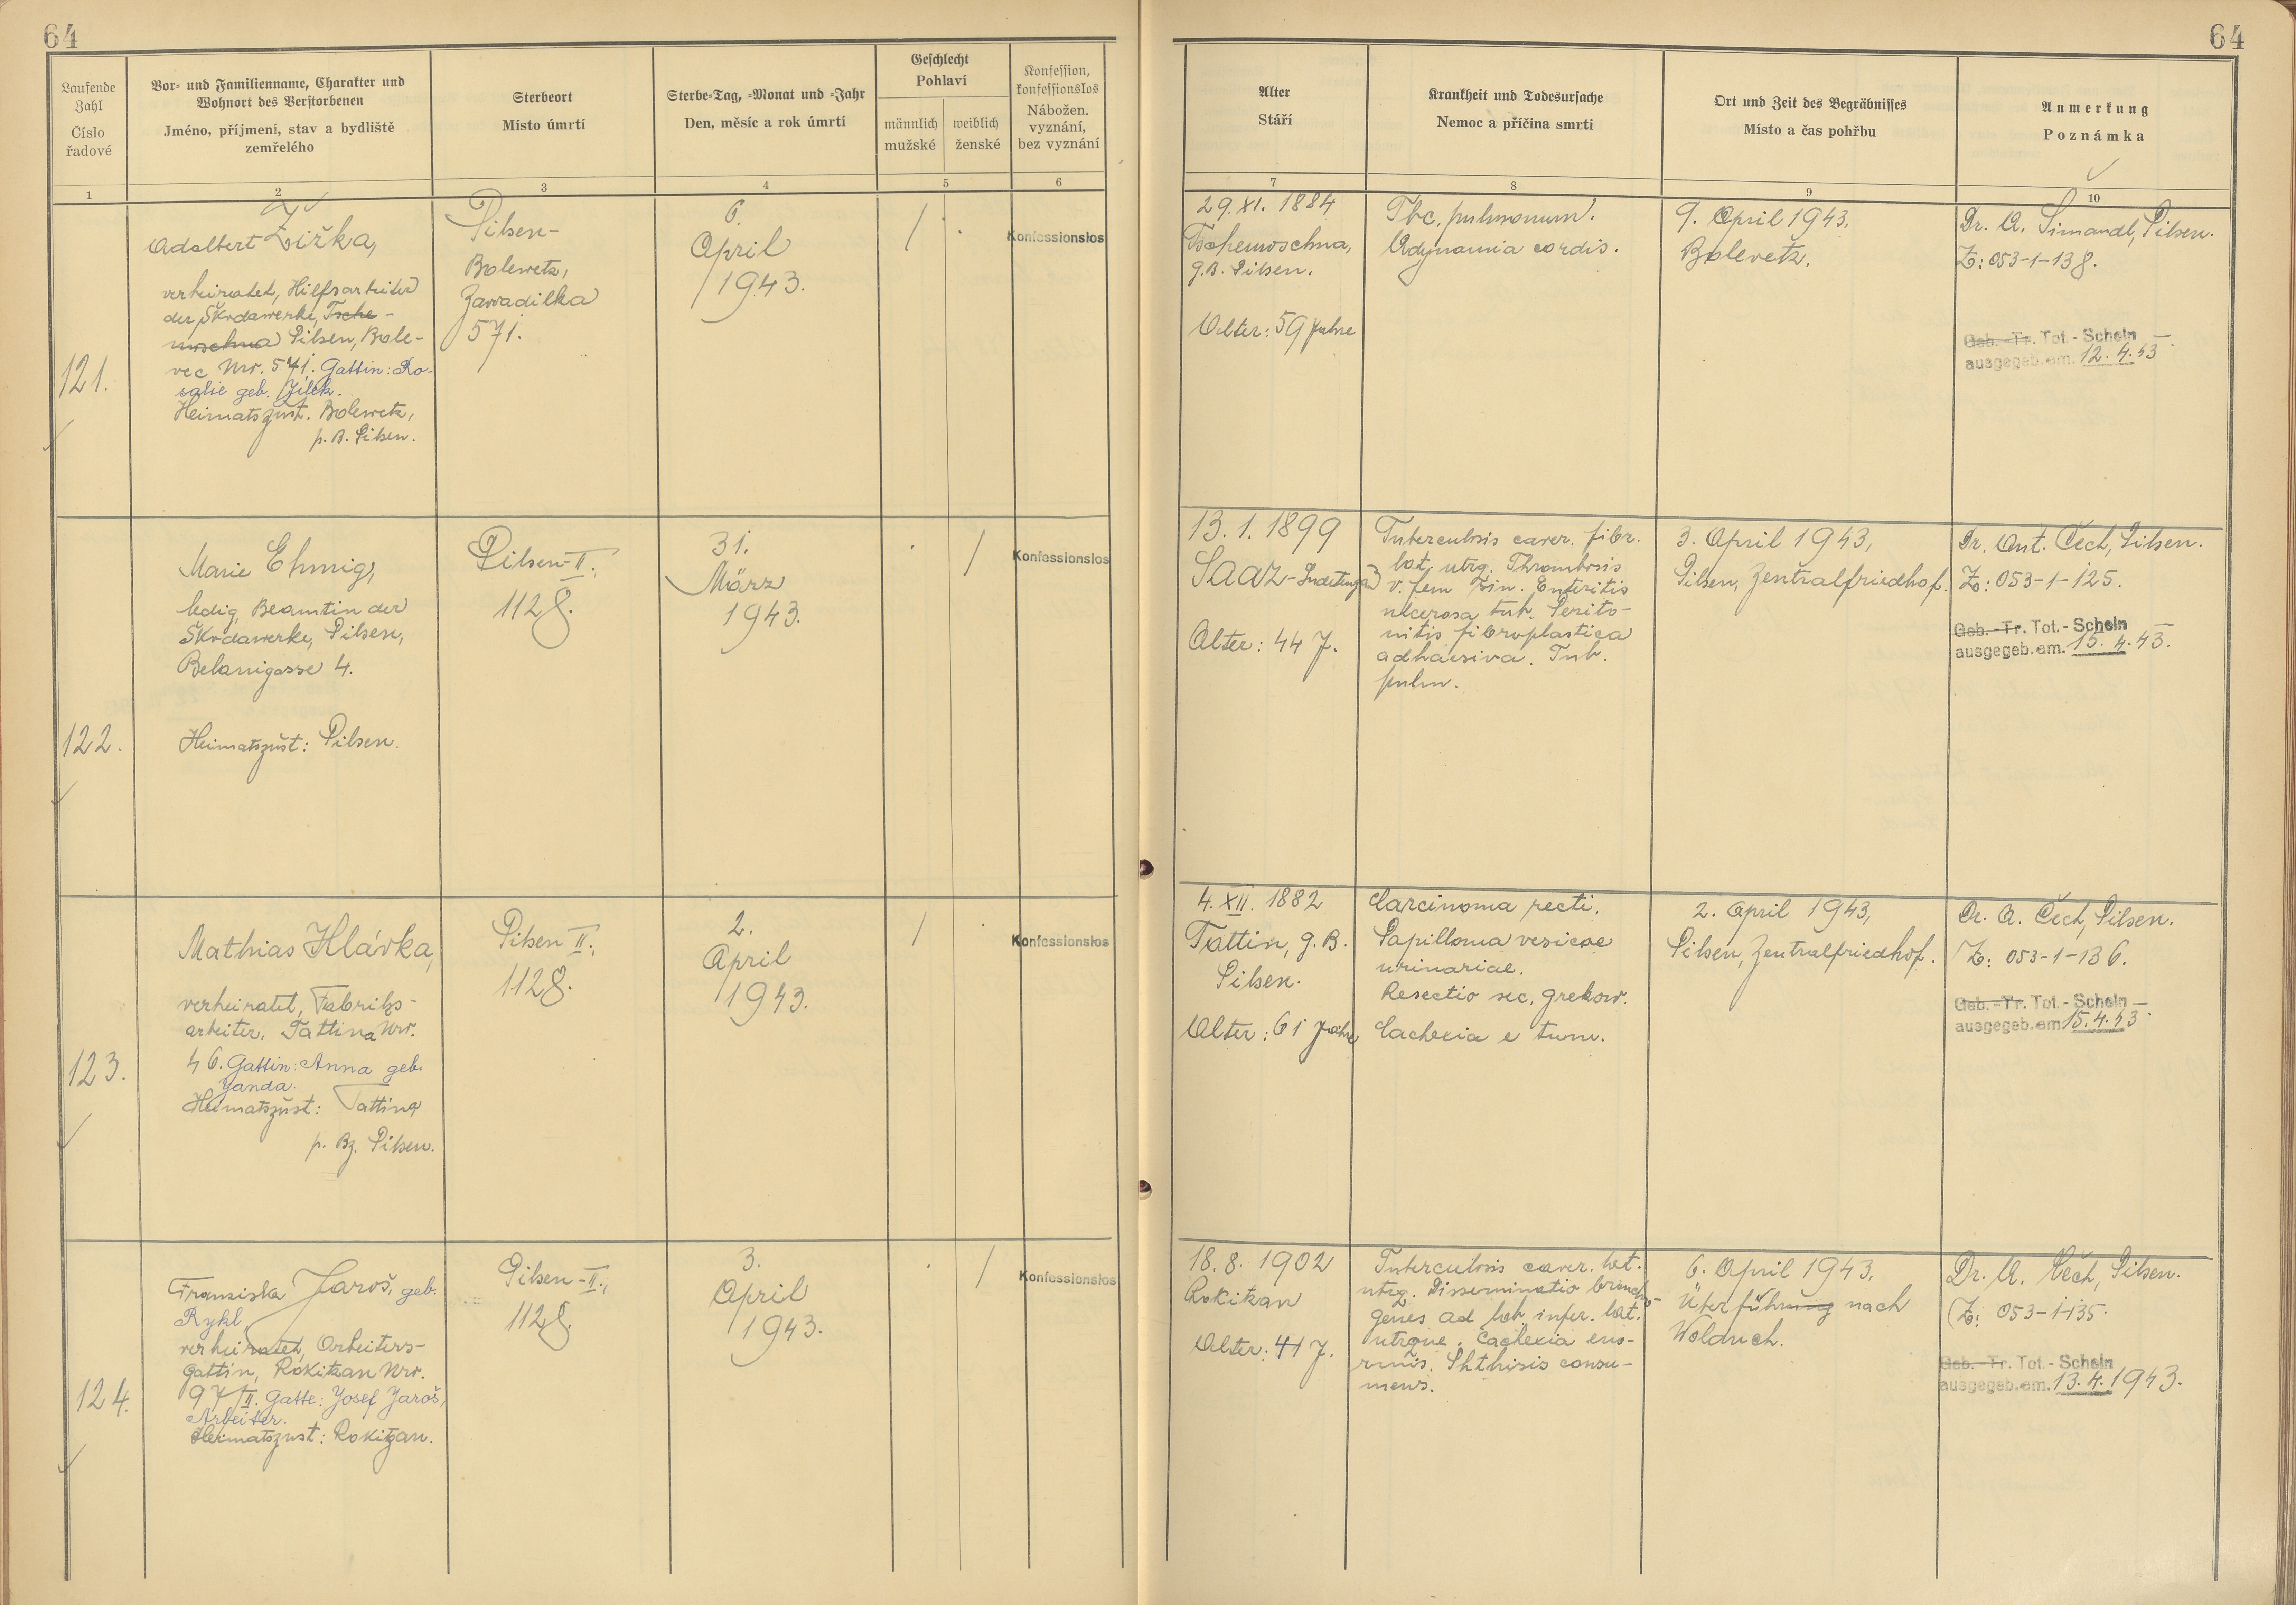 64
64
Laufende Zahl
Číslo řadové
Vor- und Familienname, Charakter und
Wohnort des Verstorbenen
Jméno, příjmení, stav a bydliště
zemřelého
Sterbeort
Místo úmrtí
Sterbe-Tag, -Monat und -Jahr
Den, měsíc a rok úmrtí
Geschlecht
Pohlaví
männlich
mužské
weiblich
ženské
Konfession,
konfessionslos
Nábožen.
vyznání,
bez vyznání
Alter
Stáří
Krankheit und Todesursache
Nemoc a příčina smrti
Ort und Zeit des Begräbnisses
Místo a čas pohřbu
Anmerkung
Poznámka
1
2
3
4
5
6
7
8
9
10
121.
Adalbert Žižka,
verheiratet, Hilfsarbeiter
der Škodawerke, Tsche-
moschna Pilsen, Bole-
vec Nr. 571. Gattin: Ro-
salie geb. Jílek.
Heimatszust. Bolewetz,
p. B. Pilsen.
Pilsen-
Bolewetz,
Zawadilka
571.
6.
April
1943.
/
Konfessionslos
29. XI. 1884
Tschemoschna,
g.B. Pilsen.
Alter: 59 Jahre
Tbc. pulmonum.
Adynamia cordis.
9. April 1943,
Bolevetz.
Dr. A. Simandl, Pilsen.
Z: 053-1-138.
Geb.-Tr. Tot.-Schein
ausgegeb. am. 12.4.43
122.
Marie Ehmig,
ledig, Beamtin der
Škodawerke, Pilsen,
Belanigasse 4.
Heimatszust: Pilsen.
Pilsen-II.,
1128.
31.
März
1943.
/
Konfessionslos
13. 1. 1899
Saaz-Sudetengau
Alter: 44 J.
Tuberculosis caver. fibr.
lat. utrq. Thrombosis
v. fem sin. Enteritis
ulcerosa tub. Perito-
nitis fibroplastica
adhaesiva. Tub.
pulm.
3. April 1943,
Pilsen, Zentralfriedhof.
Dr. Ant. Čech, Pilsen.
Z: 053-1-125.
Geb.-Tr. Tot.-Schein
ausgegeb. am. 15.4.43.
123.
Mathias Hlávka,
verheiratet, Fabriks-
arbeiter, Tattina Nr.
46. Gattin: Anna geb.
Janda.
Heimatszust: Tattina
p. Bz. Pilsen.
Pilsen II.,
1128.
2.
April
1943.
/
Konfessionslos
4. XII. 1882
Tattin, g. B.
Pilsen.
Alter: 61 Jahre
Carcinoma recti.
Papilloma vesicae
urinariae.
Resectio sec. Grekow.
Cachexia e tum.
2. April 1943,
Pilsen, Zentralfriedhof.
Dr. A. Čech, Pilsen.
Z: 053-1-136.
Geb.-Tr. Tot.-Schein
ausgegeb. am. 15.4.43.
124.
Franziska Jaroš, geb.
Rykl,
verheiratet, Arbeiters-
gattin, Rokitzan Nr.
97/II. Gatte: Josef Jaroš,
Arbeiter.
Heimatszust: Rokitzan.
Pilsen-II.,
1128.
3.
April
1943.
/
Konfessionslos
18. 8. 1902
Rokitzan
Alter: 41 J.
Tuberculosis caver. lat.
utrq. Disseminatio broncho-
genes ad lob. infer. lat.
utrque. Cachexia eno-
rmis. Phthisis consu-
mens.
6. April 1943,
Überführung nach
Wolduch.
Dr. A. Čech, Pilsen.
Z: 053-1-135.
Geb.-Tr. Tot.-Schein
ausgegeb. am. 13.4.1943.